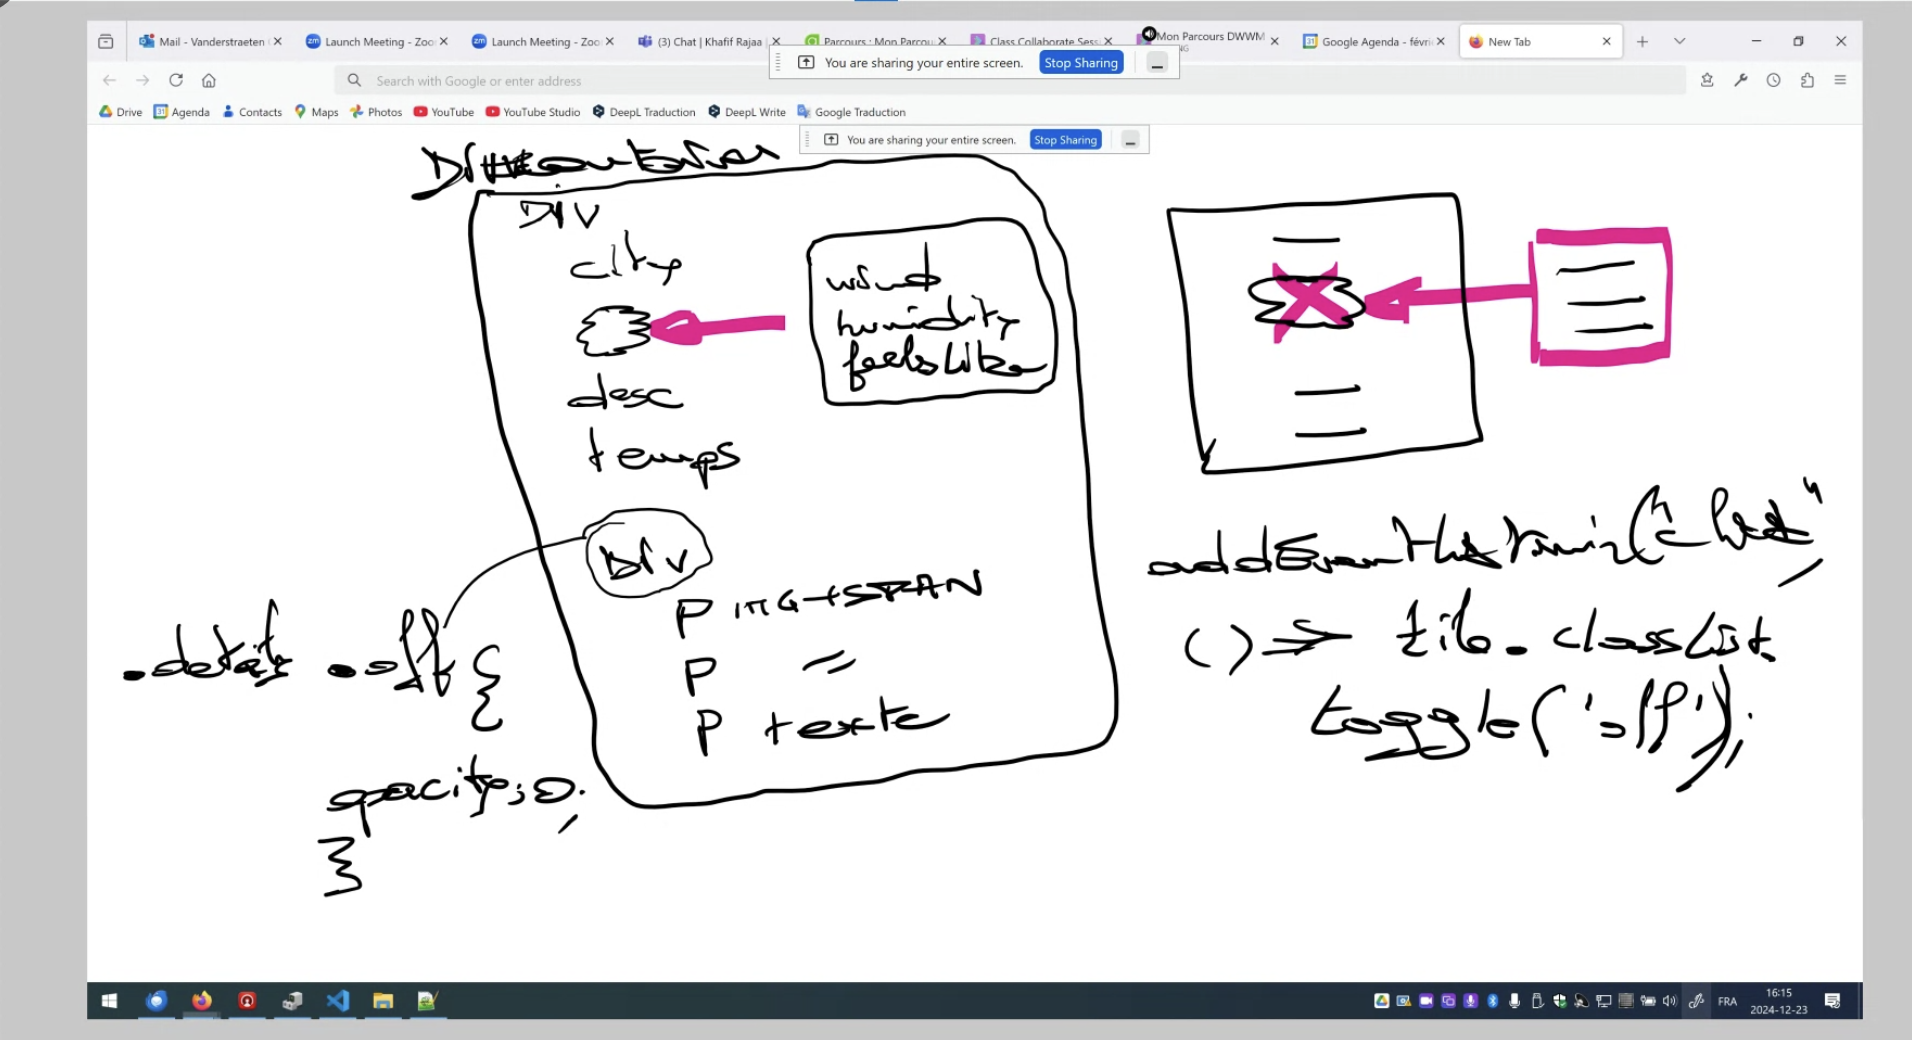 Mail - Vanderstraeten
Launch Meeting - Zoo
Launch Meeting - Zoo
(3) Chat | Khafif Rajaa
Parcours : Mon Parcou
Class Collaborate Sess
Mon Parcours DWWM
NG
Google Agenda - févri
New Tab
You are sharing your entire screen.
Stop Sharing
Search with Google or enter address
Drive
Agenda
Contacts
Maps
Photos
YouTube
YouTube Studio
DeepL Traduction
DeepL Write
Google Traduction
You are sharing your entire screen.
Stop Sharing
DIV
city
desc
temps
wind
humidity
feelsLike
Div
P IMG+SPAN
P =
P texte
.details .off {
opacity: 0;
}
addEventListener("click",
() => tile.classList.
toggle('off');
FRA
16:15
2024-12-23